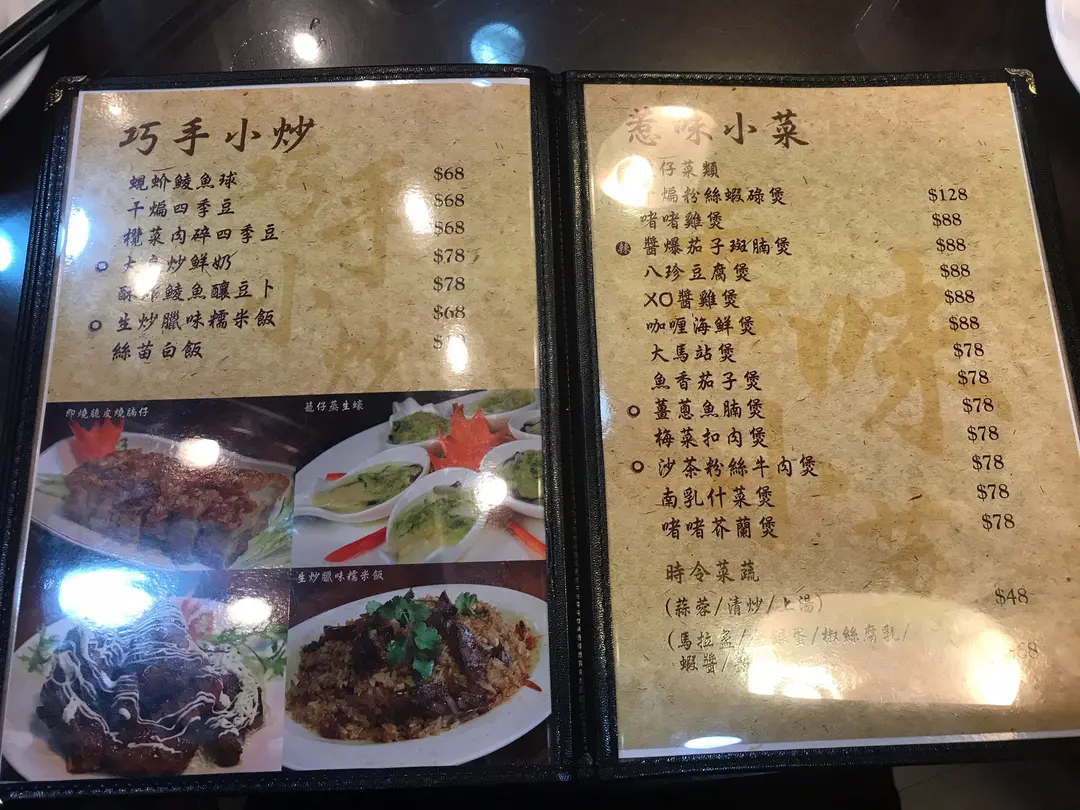 巧手小炒
蜆蚧鯪魚球 $68
干煸四季豆 $68
欖菜肉碎四季豆 $68
炒鮮奶 $78
鯪魚釀豆卜 $78
生炒臘味糯米飯 $68
絲苗白飯
即燒脆皮燒腩仔
籠仔蒸生蠔
生炒臘味糯米飯
惹味小菜
仔菜類
煸粉絲蝦碌煲 $128
啫啫雞煲 $88
辣 醬爆茄子斑腩煲 $88
八珍豆腐煲 $88
XO醬雞煲 $88
咖喱海鮮煲 $88
大馬站煲 $78
魚香茄子煲 $78
薑蔥魚腩煲 $78
梅菜扣肉煲 $78
沙茶粉絲牛肉煲 $78
南乳什菜煲 $78
啫啫芥蘭煲 $78
時令菜蔬
(蒜蓉/清炒/上湯) $48
(馬拉盞/ 蛋/椒絲腐乳/
蝦醬/